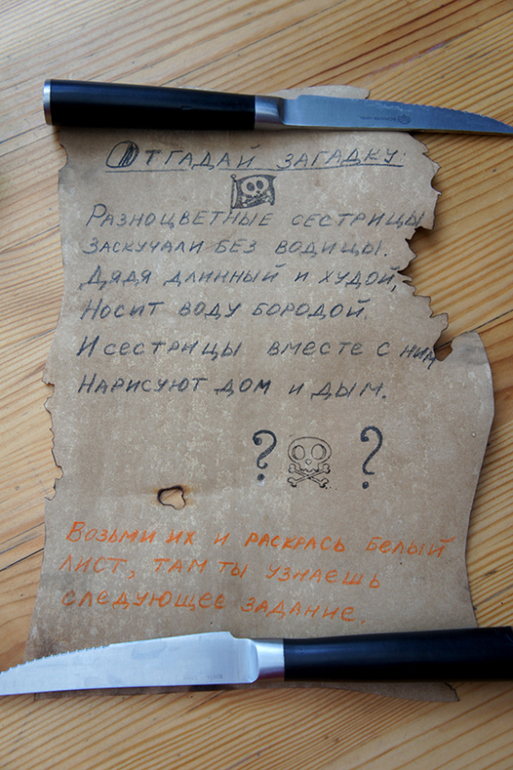 ОТГАДАЙ ЗАГАДКУ:
РАЗНОЦВЕТНЫЕ СЕСТРИЦЫ
ЗАСКУЧАЛИ БЕЗ ВОДИЦЫ.
ДЯДЯ ДЛИННЫЙ И ХУДОЙ,
НОСИТ ВОДУ БОРОДОЙ.
И СЕСТРИЦЫ ВМЕСТЕ С НИМ
НАРИСУЮТ ДОМ И ДЫМ.
? ?
ВОЗЬМИ ИХ И РАСКРАСЬ БЕЛЫЙ
ЛИСТ, ТАМ ТЫ УЗНАЕШЬ
СЛЕДУЮЩЕЕ ЗАДАНИЕ.